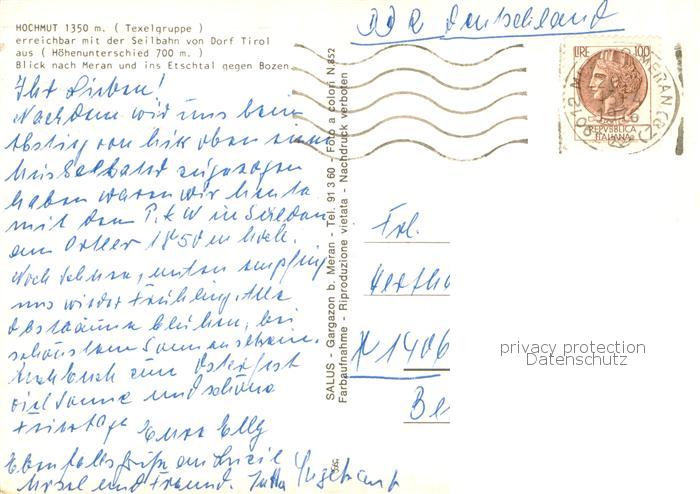 HOCHMUT 1350 m. ( Texelgruppe )
erreichbar mit der Seilbahn von Dorf Tirol
aus ( Höhenunterschied 700 m. )
Blick nach Meran und ins Etschtal gegen Bozen
Ihr Lieben!
Nachdem wir uns beim
Abstieg von hier oben einen
zugezogen
haben waren wir heute
mit dem P.K.W in Sulden
am Ortler 1850 m hoch.
Noch Schnee, unten empfing
uns wieder Frühling. Alle
Obstbäume blühen, bei
schönstem Sonnenschein.
Euch auch zum Osterfest
viel Sonne und schöne
Freizeit
Eure Elly
Ebenfalls Grüße an
Ursel und Freund. Jutta Ingetraut
SALUS - Gargazon b. Meran - Tel. 91 3 60 - Foto a colori N.852
Farbaufnahme - Riproduzione vietata - Nachdruck verboten
DDR Deutschland
LIRE 100
REPVBBLICA
ITALIANA
MERAN
Frl.
Hertha
X 1406
Be
privacy protection
Datenschutz